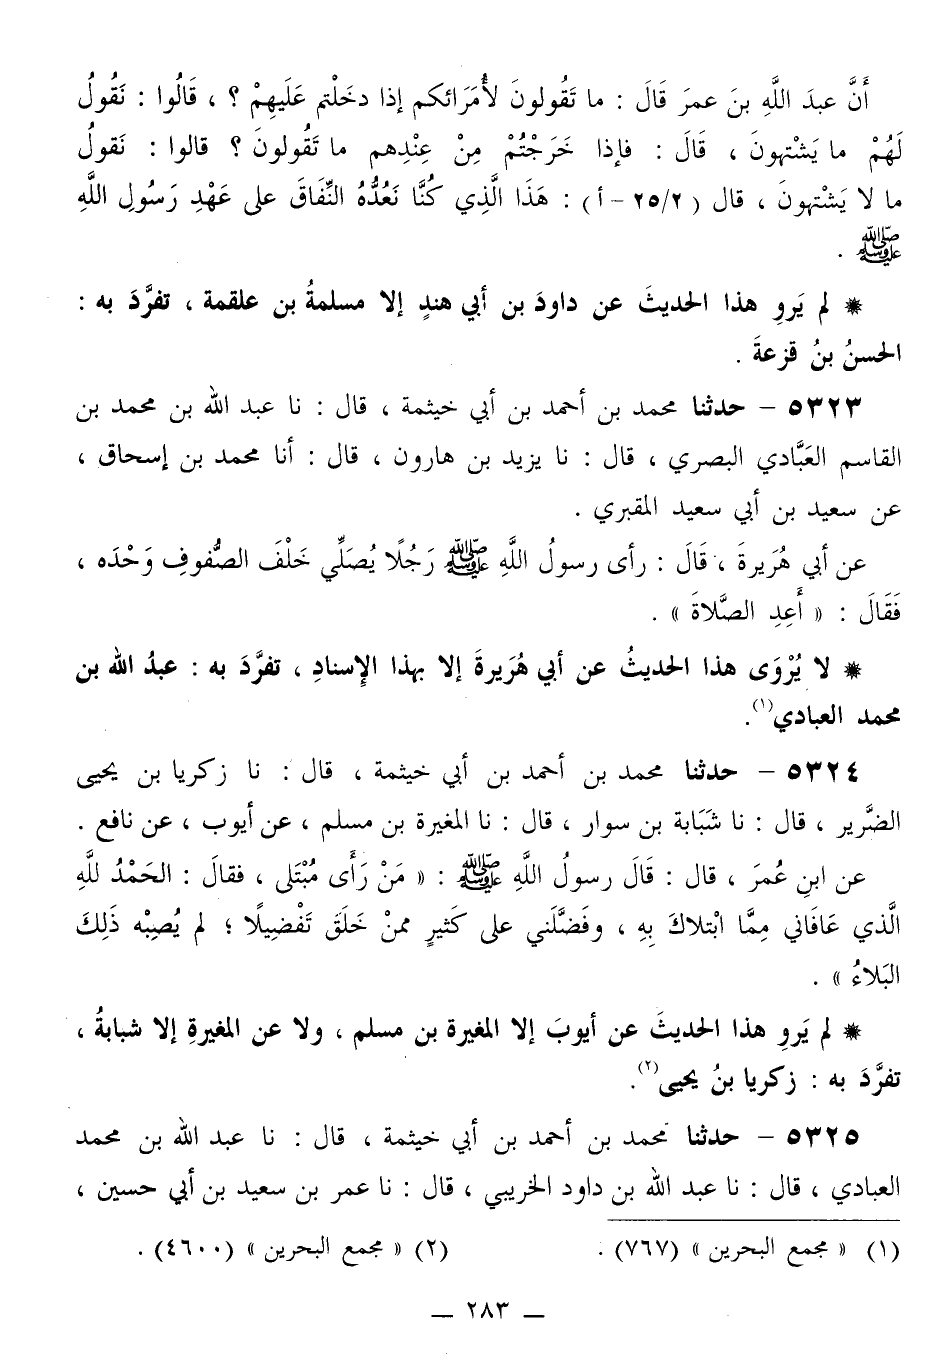 أَنَّ عبدَ اللَّهِ بنَ عمرَ قَالَ : ما تَقُولونَ لأُمَرَائكم إذا دخَلْتم عَلَيهِمْ ؟ ، قَالُوا : نَقُولُ
لَهُمْ ما يَشْتهونَ ، قَالَ : فإذا خَرَجْتُمْ مِنْ عِنْدِهم ما تَقُولونَ ؟ قالوا : نَقولُ
ما لا يَشْتهونَ ، قال (٢/ ٢٥ - أ) : هَذَا الَّذِي كُنَّا نَعُدُّهُ النِّفَاقَ على عَهْدِ رَسُولِ اللَّهِ
ﷺ .
* لم يَروِ هذا الحديثَ عن داودَ بن أبي هندٍ إلا مسلمةُ بن علقمة ، تفرَّدَ به :
الحسنُ بنُ قزعةَ .
٥٣٢٣ - حدثنا محمد بن أحمد بن أبي خيثمة ، قال : نا عبد الله بن محمد بن
القاسم العَبَّادي البصري ، قال : نا يزيد بن هارون ، قال : أنا محمد بن إسحاق ،
عن سعيد بن أبي سعيد المقبري .
عن أبي هُرَيرةَ ، قَالَ : رأى رسولُ اللَّهِ ﷺ رَجُلًا يُصَلِّي خَلْفَ الصُّفوفِ وَحْدَه ،
فَقَالَ : « أَعِدِ الصَّلاةَ » .
* لا يُرْوَى هذا الحديثُ عن أبي هُرَيرةَ إلا بهذا الإسنادِ ، تفرَّدَ به : عبدُ الله بن
محمد العبادي(١).
٥٣٢٤ - حدثنا محمد بن أحمد بن أبي خيثمة ، قال : نا زكريا بن يحيى
الضَّرير ، قال : نا شَبَابة بن سوار ، قال : نا المغيرة بن مسلم ، عن أيوب ، عن نافع .
عن ابنِ عُمرَ ، قال : قَالَ رسولُ اللَّهِ ﷺ : « مَنْ رَأَى مُبْتَلى ، فقالَ : الحَمْدُ للَّهِ
الَّذي عَافَاني مِمَّا ابْتلاكَ بِهِ ، وفَضَّلَني على كَثيرٍ ممنْ خَلَقَ تَفْضِيلًا ؛ لم يُصِبْه ذَلِكَ
البَلاءُ » .
* لم يَروِ هذا الحديثَ عن أيوبَ إلا المغيرة بن مسلم ، ولا عن المغيرةِ إلا شبابةُ ،
تفرَّدَ به : زكريا بنُ يحيى(٢).
٥٣٢٥ - حدثنا محمد بن أحمد بن أبي خيثمة ، قال : نا عبد الله بن محمد
العبادي ، قال : نا عبد الله بن داود الخريبي ، قال : نا عمر بن سعيد بن أبي حسين ،
(١) « مجمع البحرين » (٧٦٧) . (٢) « مجمع البحرين » (٤٦٠٠) .
— ٢٨٣ —